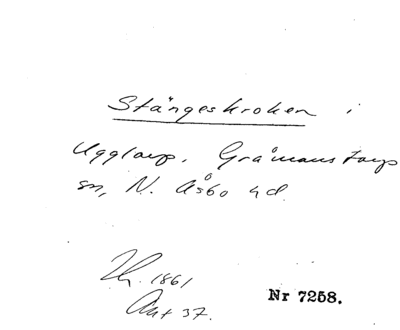 Stångeskroken i
Ugglarp, Gråmanstorps
sn, N. Åsbo hd.
1861
Akt 37.
Nr 7258.